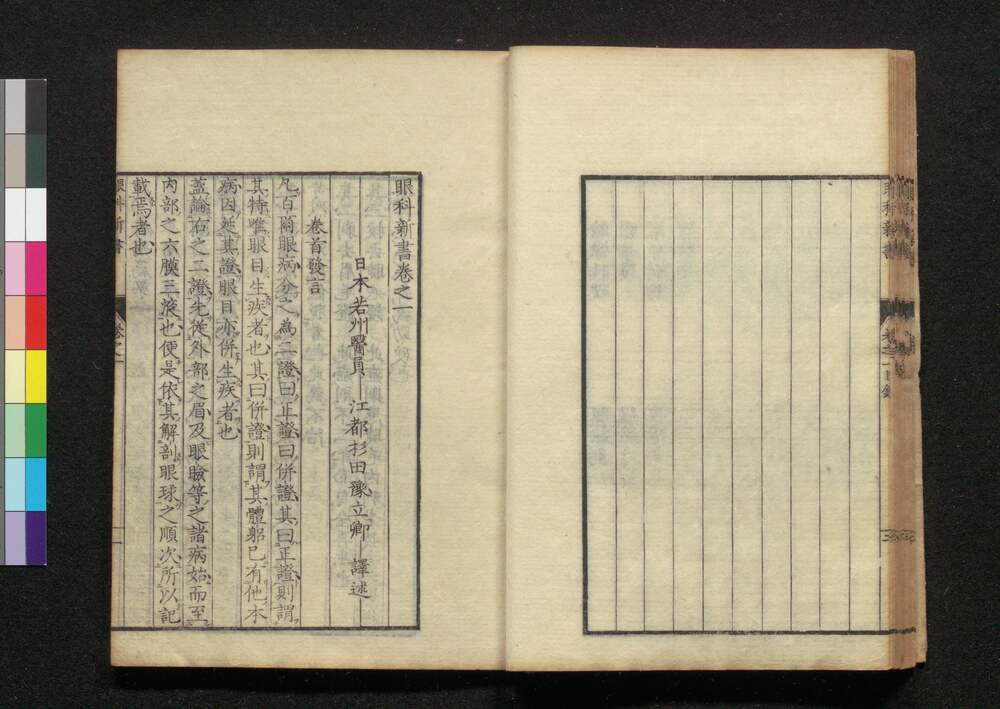 眼科新書卷之一
日本若州醫員 江都杉田豫立卿 譯述
卷首發言
凡百關眼病分之為二證曰正證曰併證其曰正證則謂
其特唯眼目生疾者也其曰併證則謂其體軀已有他本
病因延其證眼目亦併生疾者也
蓋論右之二證先從外部之眉及眼瞼等之諸病始而至
內部之六膜三液也便是依其解剖眼球之順次所以記
載焉者也
眼科新書 卷之一 一